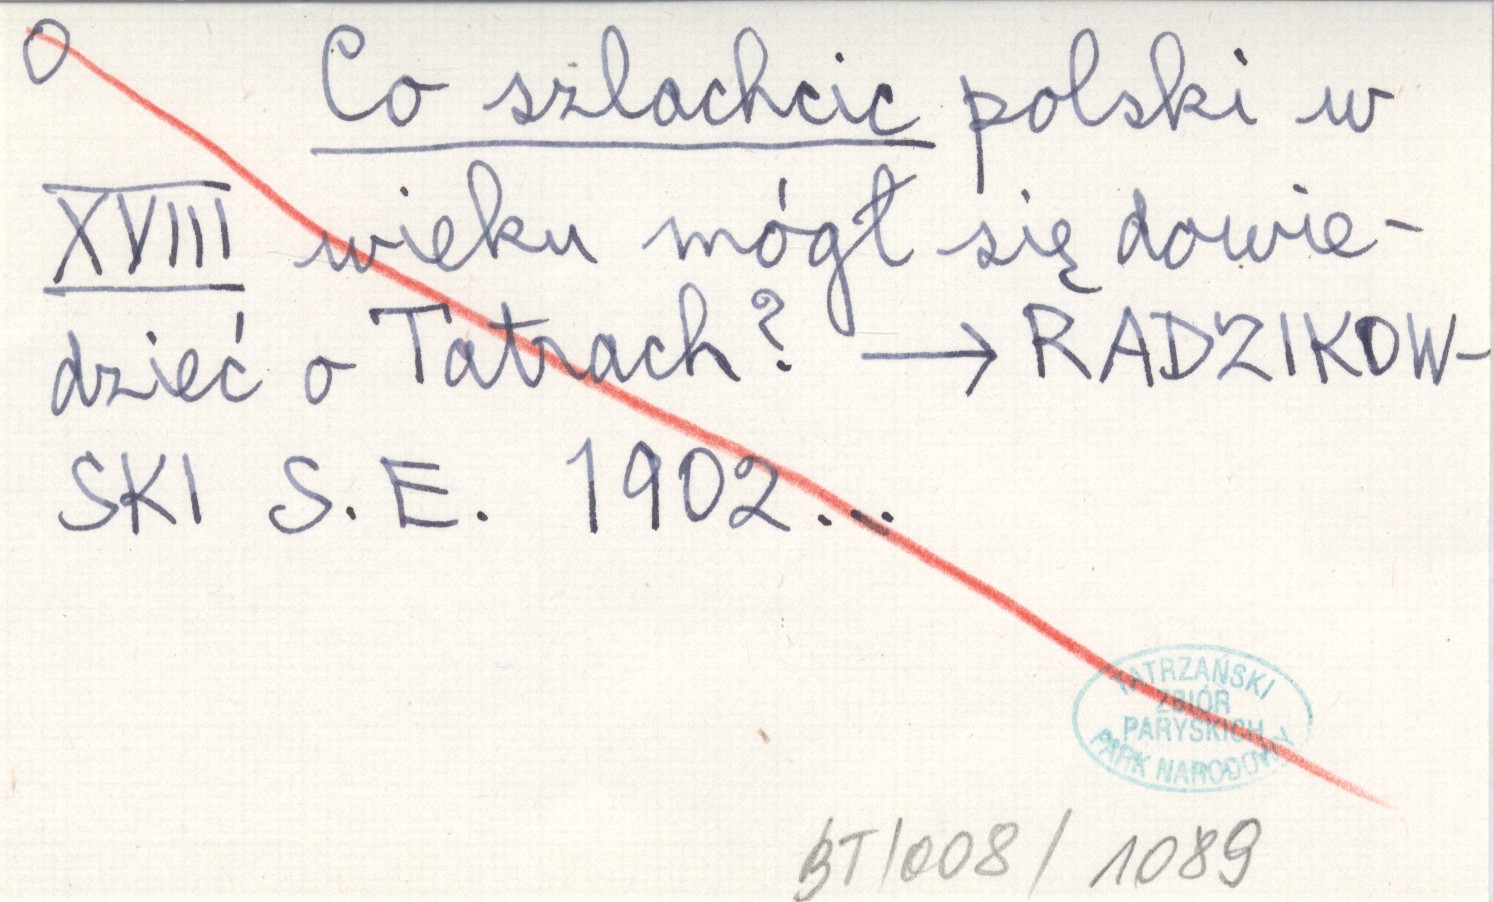 O Co szlachcic polski w
XVIII wieku mógł się dowie-
dzieć o Tatrach? → RADZIKOW-
SKI S. E. 1902...
TATRZAŃSKI
ZBIÓR
PARYSKICH
PARK NARODOWY
BT/008/1089